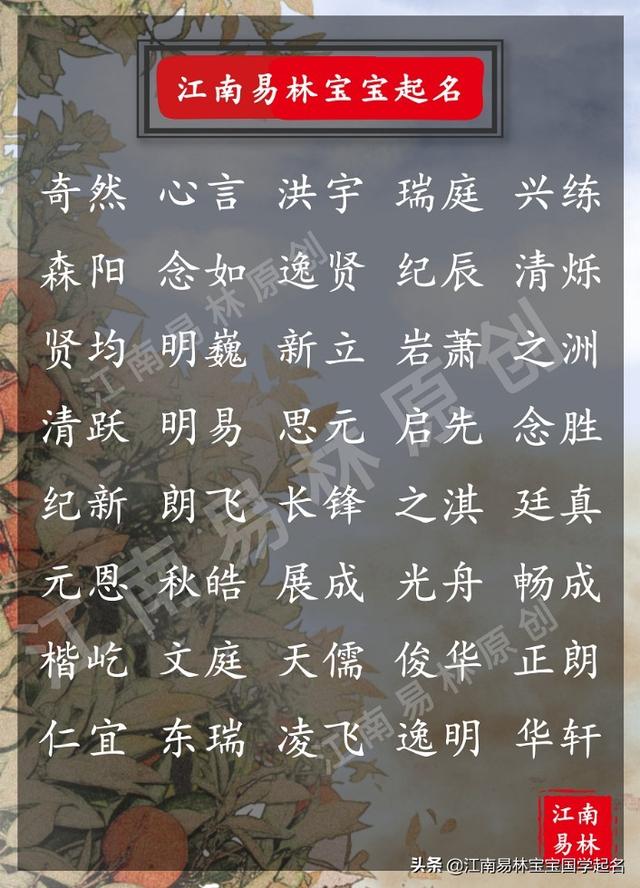 江南易林宝宝起名
奇然 心言 洪宇 瑞庭 兴练
森阳 念如 逸贤 纪辰 清烁
贤均 明巍 新立 岩萧 之洲
清跃 明易 思元 启先 念胜
纪新 朗飞 长锋 之淇 廷真
元恩 秋皓 展成 光舟 畅成
楷屹 文庭 天儒 俊华 正朗
仁宜 东瑞 凌飞 逸明 华轩
江南易林原创
江南易林原创
江南易林原创
江南
易林
头条 @江南易林宝宝国学起名